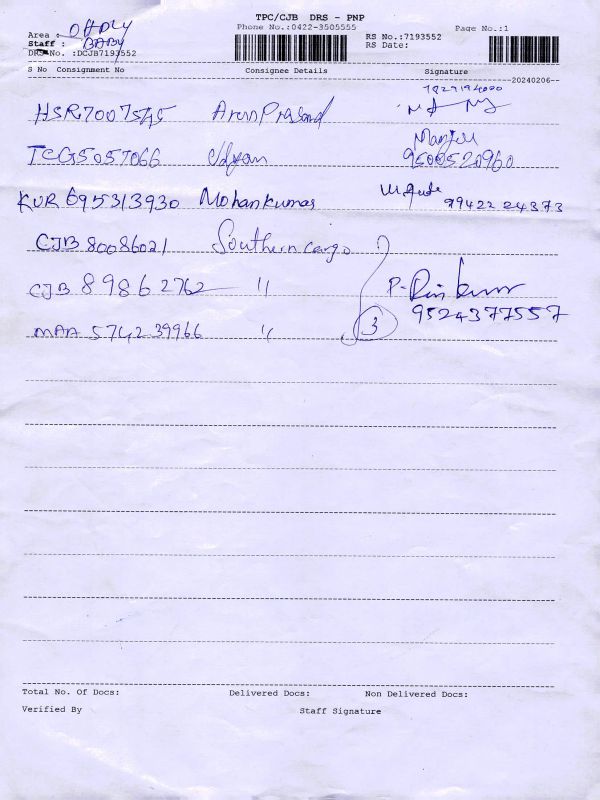 TPC/CJB DRS - PNP
Area : OFFDLY Phone No.:0422-3505555 Page No.:1
Staff : BABY RS No.:7193552
DRS No. :DCJB7193552 RS Date:
S No Consignment No Consignee Details Signature
20240206
Arun Prasand
TCG5057066 Udyan Manju 9500520960
KUR 695313930 Mohankumar 99422 24373
CJB 80086021 Southern cargo
CJB 89862762 〃 P.
MAA 574239966 〃 3 9524377557
Total No. Of Docs: Delivered Docs: Non Delivered Docs:
Verified By Staff Signature